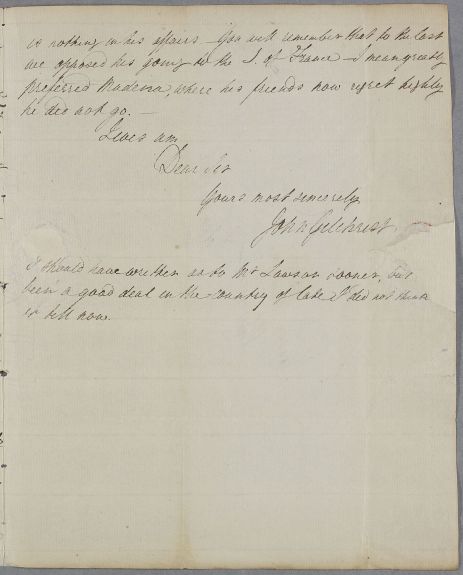 is nothing in his affairs – You will remember that to the last
we opposed his going to the S. of France – I mean greatly
preferred Madeira, where his friends now regret highly
he did not go. –
I ever am
Dear Sir
Yours most sincerely
John Gilchrist
I should have written as to Mr Lawson sooner, but
been a good deal in the country of late I did not think
it till now.